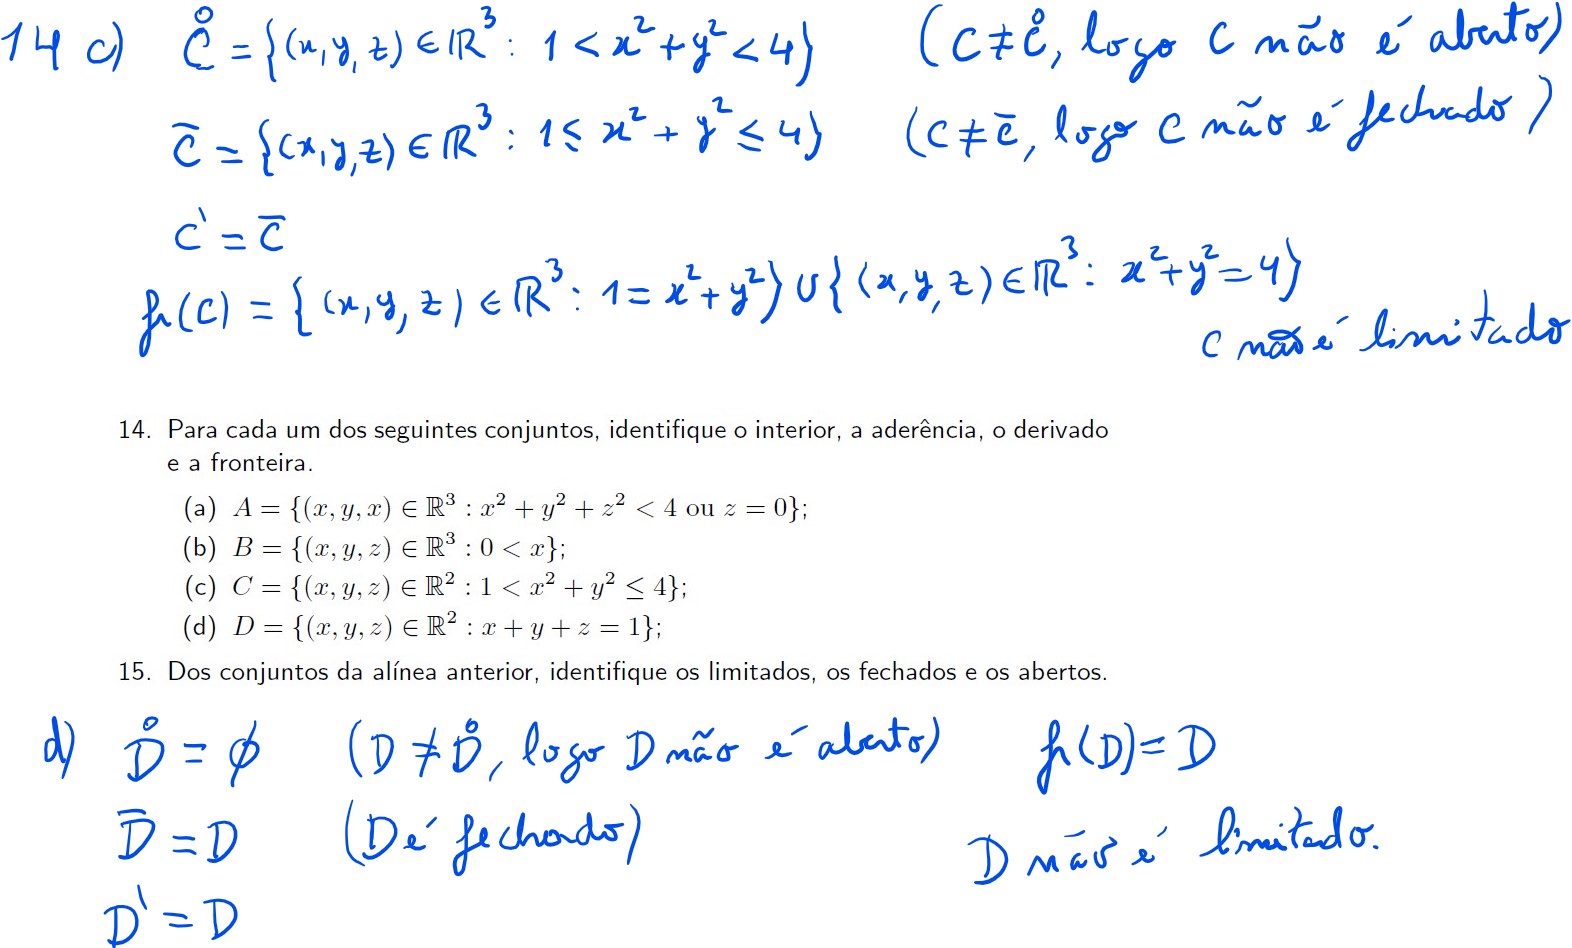 14 c) C̊ = {(x,y,z) ∈ ℝ³ : 1 < x² + y² < 4} (C ≠ C̊, logo C não é aberto)
C̄ = {(x,y,z) ∈ ℝ³ : 1 ≤ x² + y² ≤ 4} (C ≠ C̄, logo C não é fechado)
C' = C̄
fr(C) = {(x,y,z) ∈ ℝ³ : 1 = x² + y²} ∪ {(x,y,z) ∈ ℝ³ : x² + y² = 4}
C não é limitado
14. Para cada um dos seguintes conjuntos, identifique o interior, a aderência, o derivado
e a fronteira.
(a) A = {(x, y, x) ∈ ℝ³ : x² + y² + z² < 4 ou z = 0};
(b) B = {(x, y, z) ∈ ℝ³ : 0 < x};
(c) C = {(x, y, z) ∈ ℝ² : 1 < x² + y² ≤ 4};
(d) D = {(x, y, z) ∈ ℝ² : x + y + z = 1};
15. Dos conjuntos da alínea anterior, identifique os limitados, os fechados e os abertos.
d) D̊ = ∅ (D ≠ D̊, logo D não é aberto) fr(D) = D
D̄ = D (D é fechado) D não é limitado.
D' = D